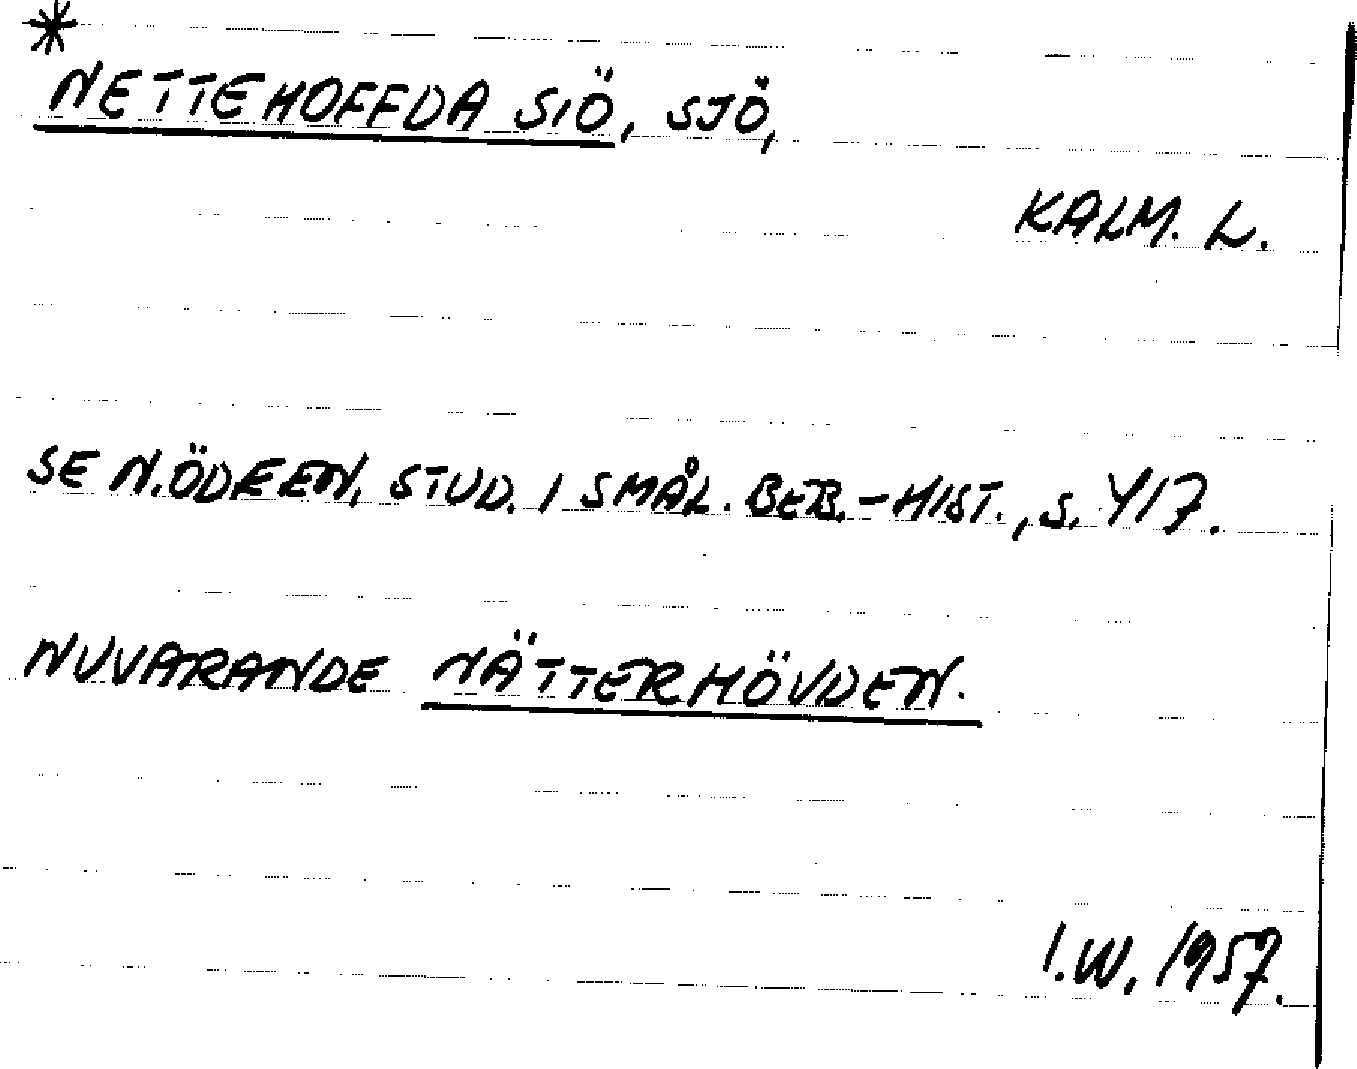 *
NETTEHOFFDA SIÖ, SJÖ,
KALM. L.
SE N. ÖDEEN, STUD. I SMÅL. BEB.-HIST., S. 417.
NUVARANDE NÄTTERHÖVDEN.
I.W. 1957.